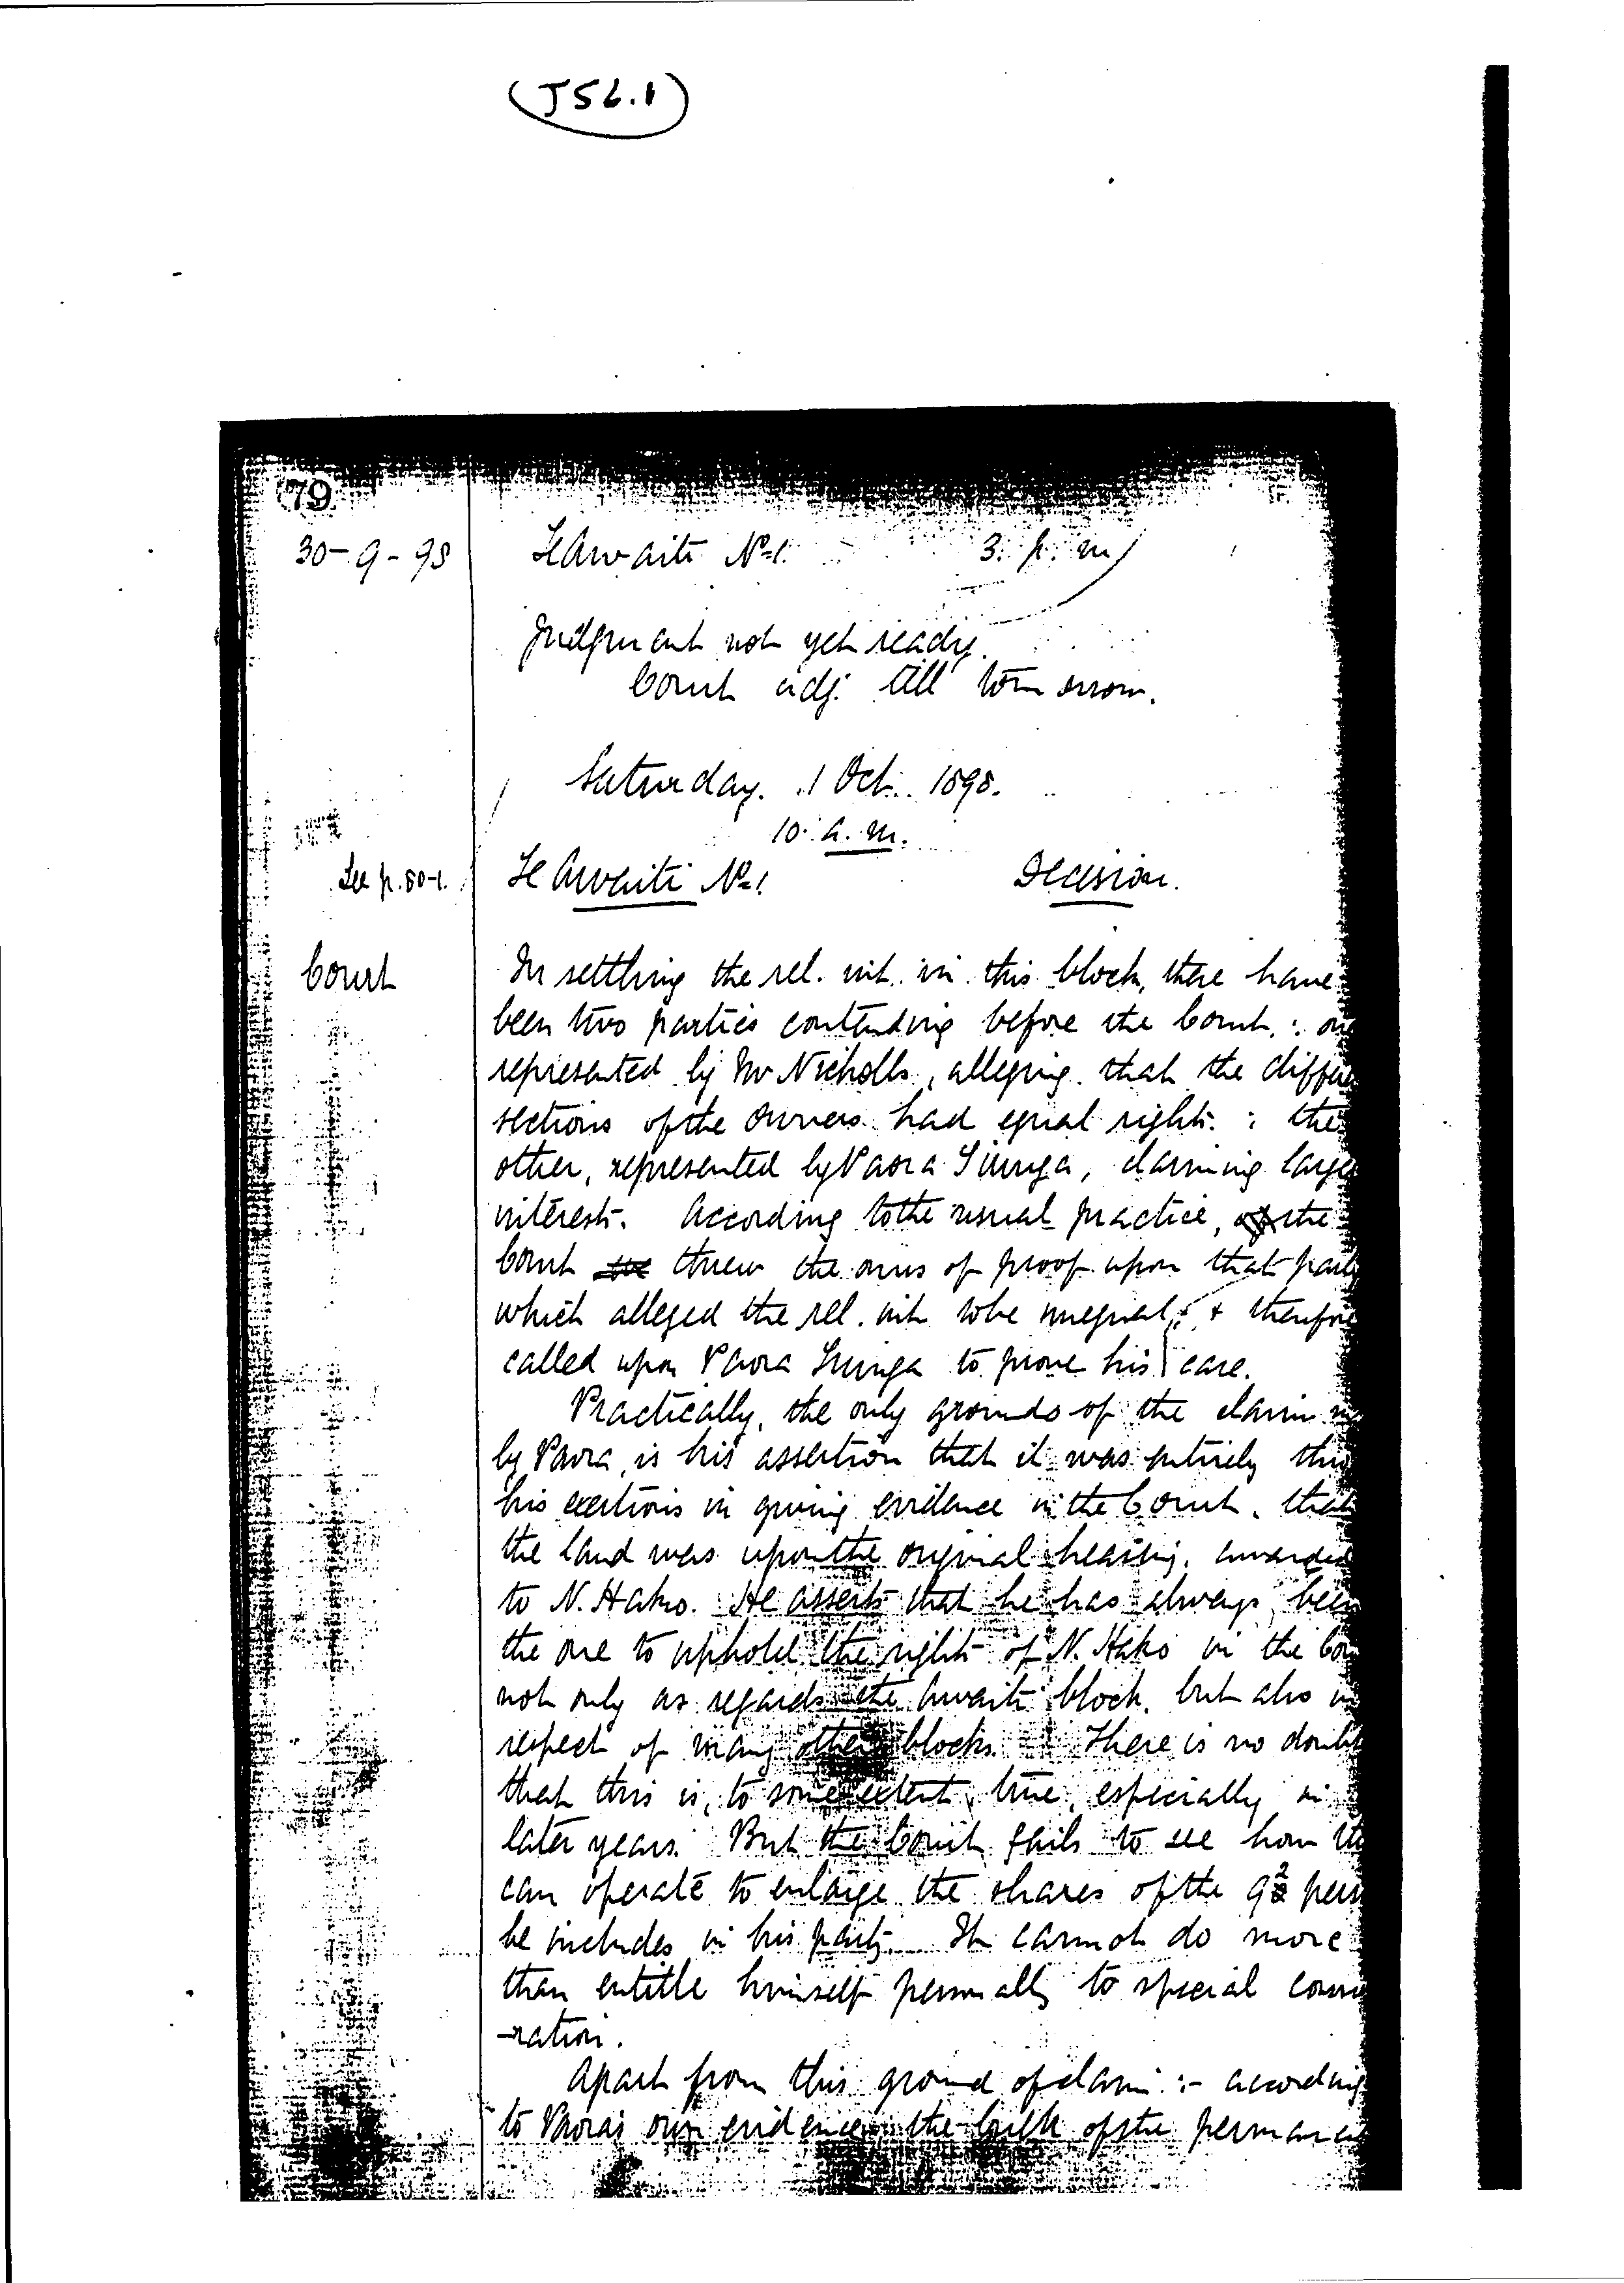 (J56.1)
79
30-9-98 Te Awaiti No 1. 3. p.m
Judgment not yet ready.
Court adj. till tomorrow.
Saturday. 1 Oct. 1898.
10. a.m.
See p. 80-1. Te Awaiti No 1. Decision.
Court In settling the rel. int. in this block, there have
been two parties contending before the Court, : one
represented by Mr Nicholls, alleging that the differe
sections of the owners had equal rights : the
other, represented by Paora Tiunga, claiming large
interests. According to the usual practice, the
Court threw the onus of proof upon that party
which alleged the rel. int. to be unequal, & therefore
called upon Paora Tiunga to prove his case.
Practically, the only grounds of the claim m
by Paora, is his assertion that it was entirely thro
his exertions in giving evidence in the Court, that
the land was upon the original hearing, awarded
to N. Hako. He asserts that he has always been
the one to uphold the rights of N. Hako in the Cou
not only as regards the Awaiti block, but also in
respect of many other blocks. There is no doubt
that this is, to some extent, true, especially in
later years. But the Court fails to see how
can operate to enlarge the shares of the 92 pers
he includes in his party. It cannot do more
than entitle himself personally to special consi
-ration.
Apart from this ground of claim :- according
to Paora's own evidence, the bulk of the permanen